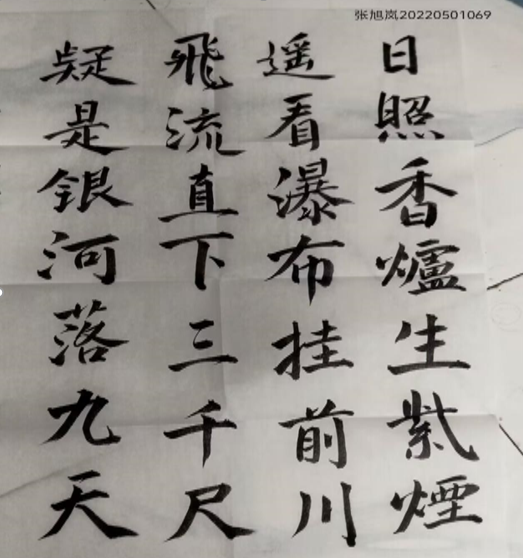 张旭岚20220501069
日照香爐生紫煙
遥看瀑布挂前川
飛流直下三千尺
疑是銀河落九天